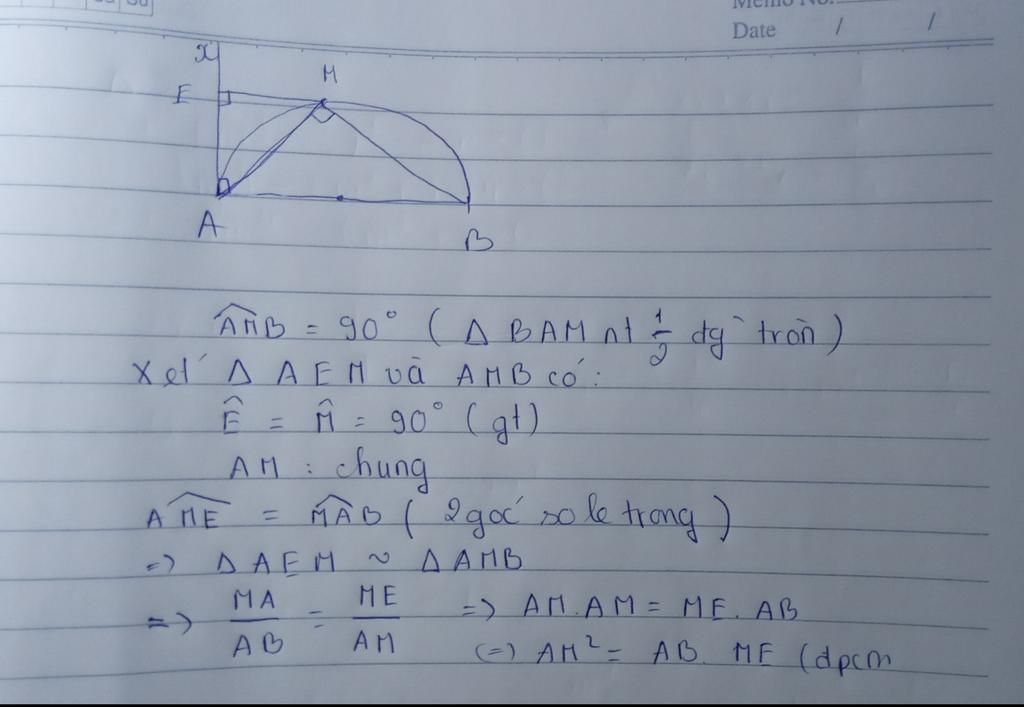 Memo No.
Date / /
x
E
M
A
B
AMB = 90° ( Δ BAM nt 1/2 đg tròn )
Xét Δ AEM và AMB có :
Ê = M̂ = 90° ( gt )
AM : chung
AME = MAB ( 2 góc so le trong )
=> Δ AEM ~ Δ AMB
=> MA/AB = ME/AM => AM.AM = ME.AB
(=) AM² = AB. ME (dpcm